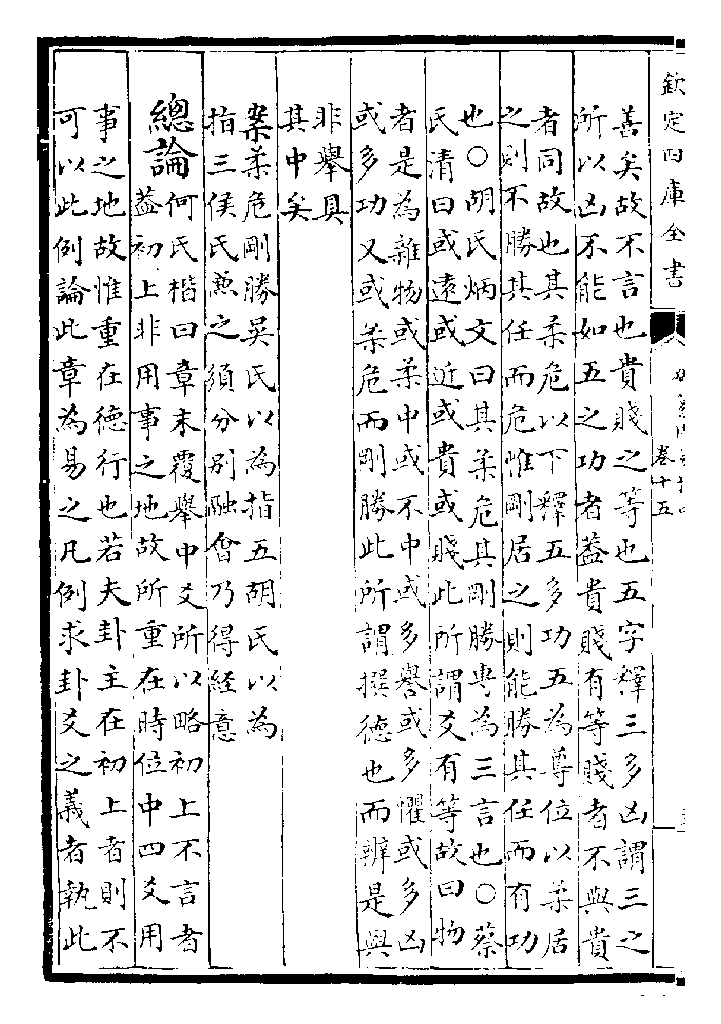 欽定四庫全書
卷十五
善矣故不言也貴賤之等也五字釋三多凶謂三之
所以凶不能如五之功者葢貴賤有等賤者不與貴
者同故也其柔危以下釋五多功五為尊位以柔居
之則不勝其任而危惟剛居之則能勝其任而有功
也○胡氏炳文曰其柔危其剛勝專為三言也○蔡
氏清曰或遠或近或貴或賤此所謂爻有等故曰物
者是為雜物或柔中或不中或多譽或多懼或多凶
或多功又或柔危而剛勝此所謂撰德也而辨是與
非舉具
其中矣
案柔危剛勝吳氏以為指五胡氏以為
指三侯氏兼之須分别融會乃得經意
總論何氏楷曰章末覆舉中爻所以略初上不言者
葢初上非用事之地故所重在時位中四爻用
事之地故惟重在德行也若夫卦主在初上者則不
可以此例論此章為易之凡例求卦爻之義者執此